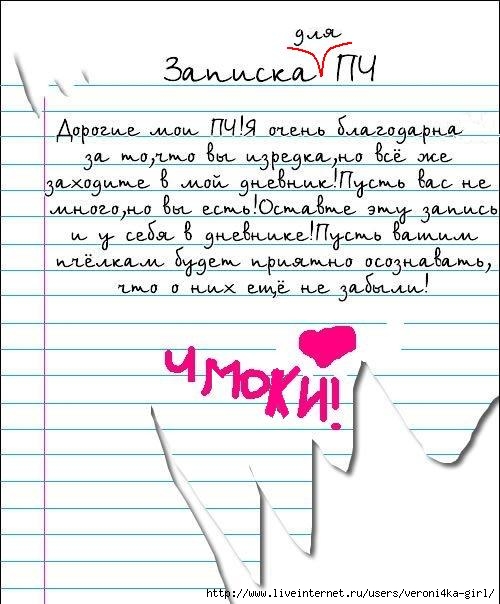 для
Записка ПЧ
Дорогие мои ПЧ!Я очень благодарна
за то,что вы изредка,но всё же
заходите в мой дневник!Пусть вас не
много,но вы есть!Оставте эту запись
и у себя в дневнике!Пусть вашим
пчёлкам будет приятно осознавать,
что о них ещё не забыли!
чмоки!
http://www.liveinternet.ru/users/veroni4ka-girl/